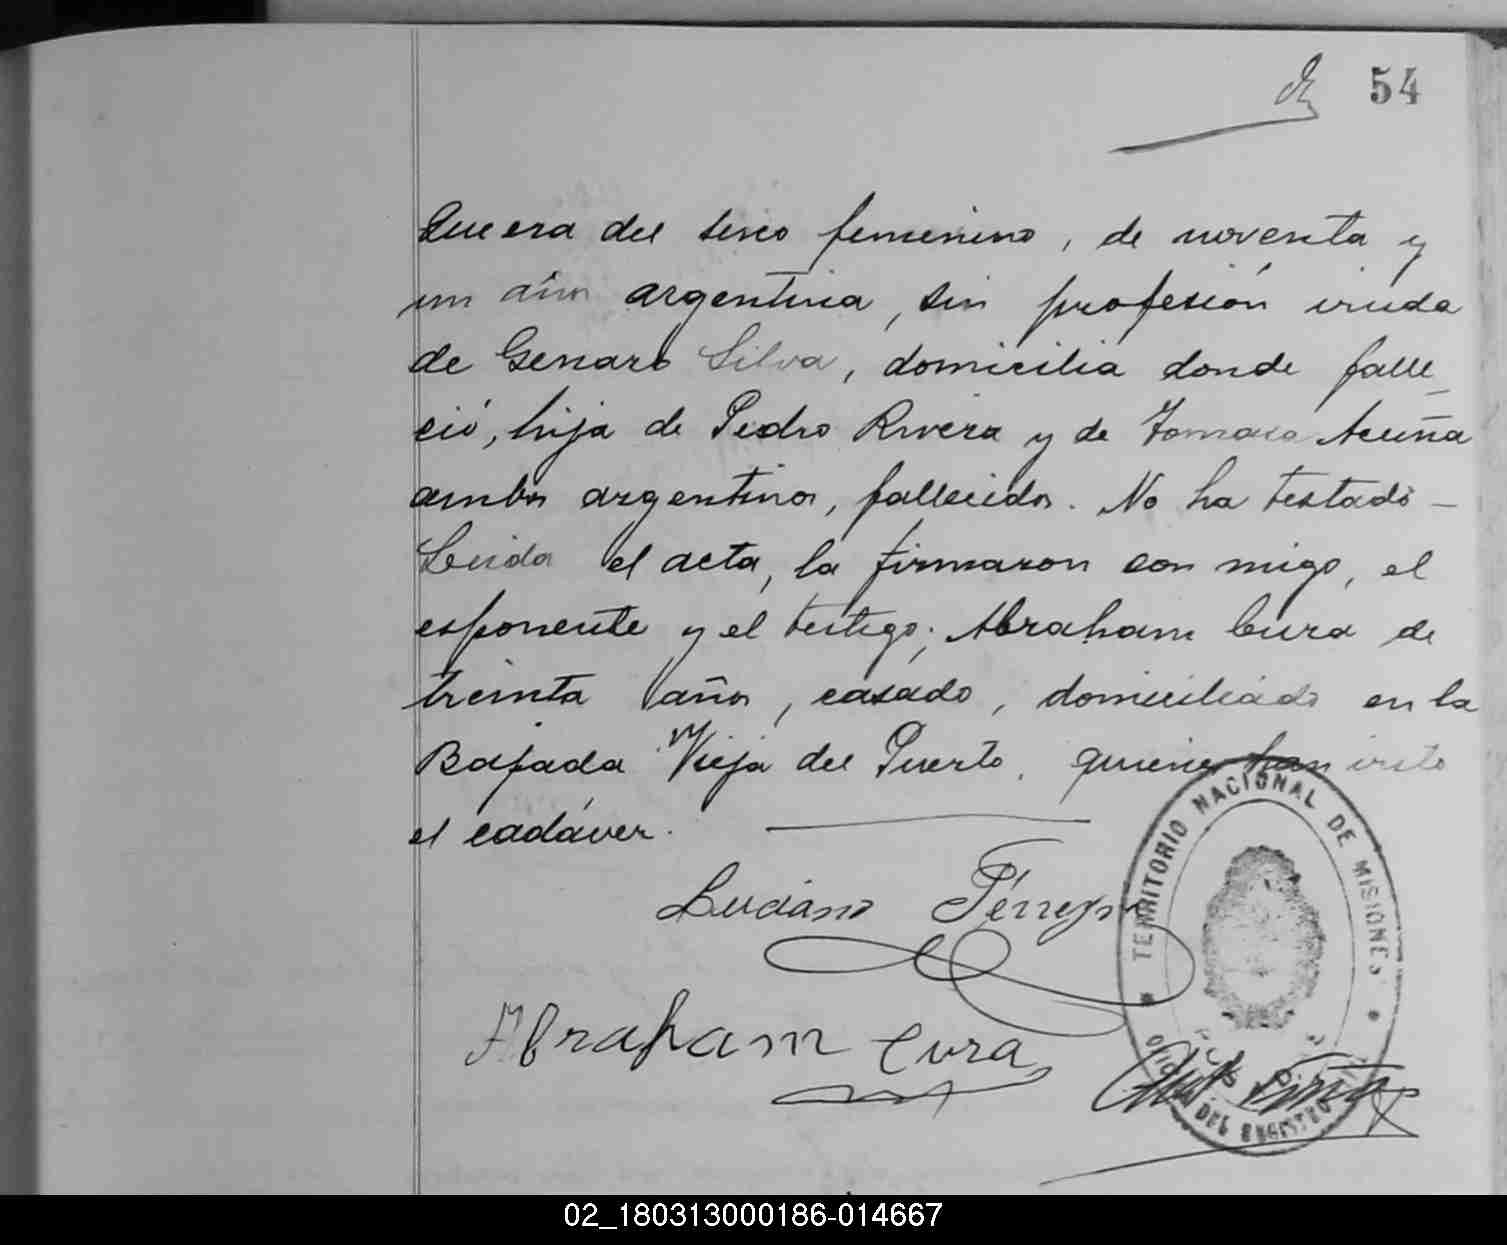 54
Que era del sexo femenino, de noventa y
un años argentina, sin profesión viuda
de Genaro Silva, domicilia donde falle_
ció, hija de Pedro Rivera y de Tomasa Acuña
ambos argentinos, fallecidos. No ha testado –
Leida el acta, la firmaron con migo, el
esponente y el testigo; Abraham Cura de
treinta años, casado, domiciliado en la
Bajada Vieja del Puerto, quienes han visto
el cadáver.
Luciano Férreyra
Abraham Cura
TERRITORIO NACIONAL DE MISIONES
DEL REGISTRO
02_180313000186-014667